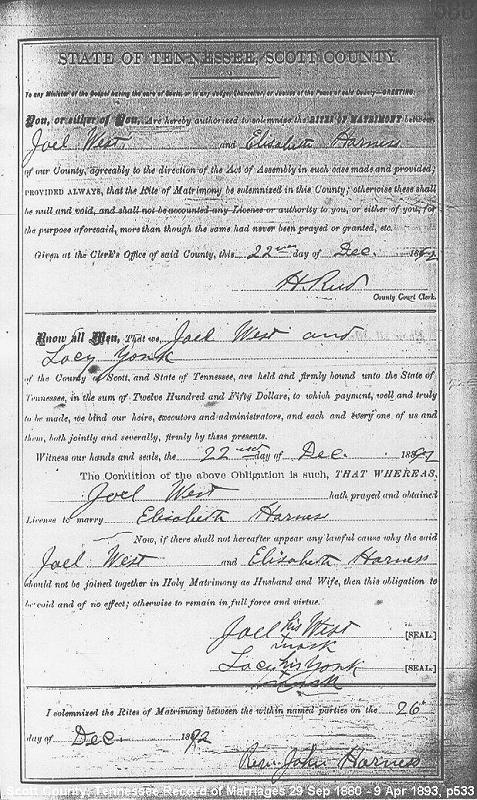 STATE OF TENNESSEE, SCOTT COUNTY.
To any Minister of the Gospel having the care of Souls, or to any Judge, Chancellor, or Justice of the Peace of said County—GREETING:
You, or either of You, Are hereby authorized to solemnize the RITES OF MATRIMONY between
Joel West and Elisabeth Harness
of our County, agreeably to the direction of the Act of Assembly in such case made and provided;
PROVIDED ALWAYS, that the Rite of Matrimony be solemnized in this County; otherwise these shall
be null and void, and shall not be accounted any License or authority to you, or either of you, for
the purpose aforesaid, more than though the same had never been prayed or granted, etc.
Given at the Clerk's Office of said County, this 22 day of Dec. 18
H. Reed
County Court Clerk.
Know all Men, That we, Joel West and
Lacy Yonk
of the County of Scott, and State of Tennessee, are held and firmly bound unto the State of
Tennessee, in the sum of Twelve Hundred and Fifty Dollars, to which payment, well and truly
to be made, we bind our heirs, executors and administrators, and each and every one of us and
them, both jointly and severally, firmly by these presents.
Witness our hands and seals, the 22 day of Dec. 18
The Condition of the above Obligation is such, THAT WHEREAS,
Joel West hath prayed and obtained
License to marry Elisabeth Harness
Now, if there shall not hereafter appear any lawful cause why the said
Joel West and Elisabeth Harness
should not be joined together in Holy Matrimony as Husband and Wife, then this obligation to
be void and of no effect; otherwise to remain in full force and virtue.
Joel his West [SEAL.]
mark
Lacy his Yonk [SEAL.]
mark
I solemnized the Rites of Matrimony between the within named parties on the 26
day of Dec 1892
Rev. John Harness
Scott County, Tennessee Record of Marriages 29 Sep 1880 - 9 Apr 1893, p533